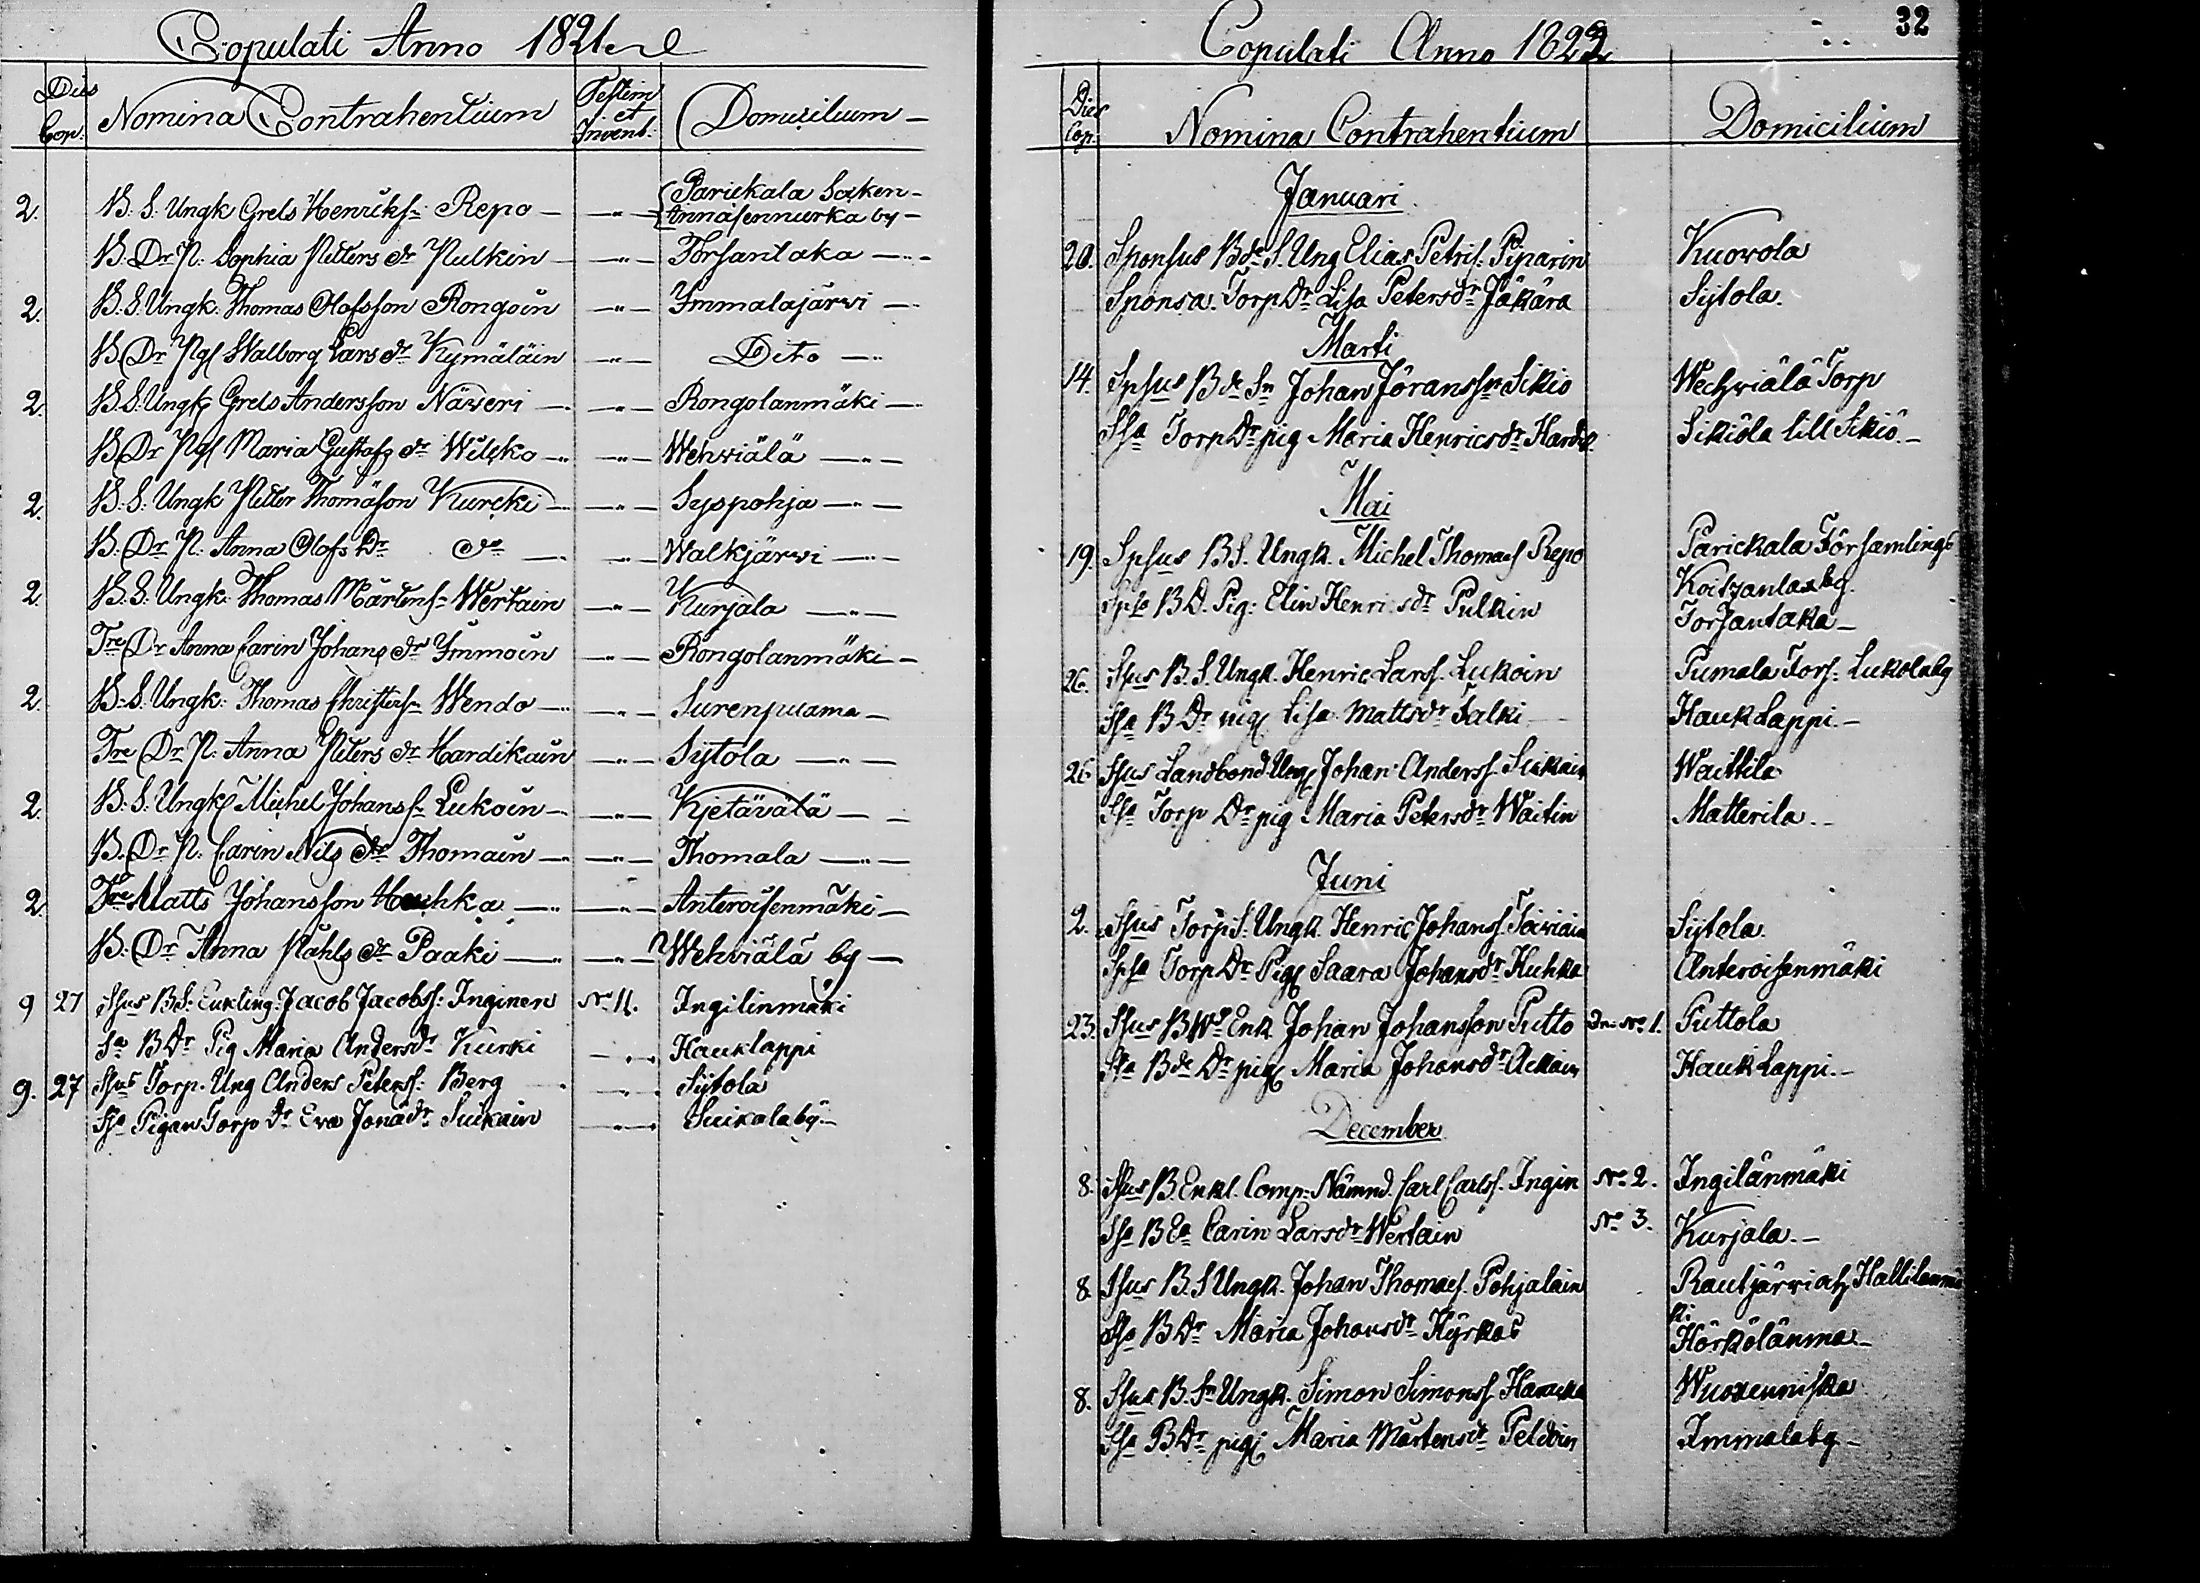 Copulati Anno 1821
Dies Cop. Nomina Contrahentium Testim et Invent. Domicilium
2. B. S. Ungk Grels Henrichs: Repo — Parickala Socken
Annasennurka by
B. Dr P. Sophia Pitters dr Pulkin — Torsantaka
2. B. S. Ungk. Thomas Olofsson Rongoin — Ymmalajärwi
B Dr Pg Walborg Lars dr Kymäläin — Dito
2. B. S. Ungk Grels Andersson Näweri — Rongolanmäki
B Dr Pg Maria Gustafs dr Wilska — Wehwiälä
2. B. S. Ungk Pitter Thomäson Kurcki — Syspohja
B. Dr P. Anna Olofs Dr do — Walkjärwi
2. B. S. Ungk. Thomas Mårtens: Wertain — Kurjala
Tre Dr Anna Carin Johans dr Ymmoin — Rongolanmäki
2. B. S. Ungk: Thomas Christers: Wendo — Surenjuama
Tre Dr P. Anna Piters dr Hardikain — Sijtola
2. B. S. Ungk Michel Johanss: Lukoin — Kjetävälä
B. Dr P. Carin Nils dr Thomain — Thomala
2. Tre Matts Johansson Hauhka — Anteroisenmäki
B. Dr Anna Påhls dr Paaki — Wehwiälä by
9 27 Spsus BS: Enkling: Jacob Jacobss: Inginen No 11. Ingilinmäki
Sa B Dr Pig Maria Andersdr Kurki — Hauklappi
9. 27 Spsus Torp. Ung Anders Peterss: Berg — Sijtola
Spsa Pigan Torp dr Eva Jonädr Suikain — Suikala by
Copulati Anno 1822
32
Dies Cop. Nomina Contrahentium Domicilium
Januari
20. Sponsus Bde S. Ung Elias Petris: Piparin Kuorola
Sponsa. Torp Dr Lisa Petersdr Jäkärä Sijtola.
Marti
14. Spsus Bde Sn Johan Jöranssn Sikiö Wechwiälä Torp
Ssa Torp Dr pig Maria Henricsdr Hardik. Sikiöla till Sikiö.
Mai
19. Spsus B S. Ungk. Michel Thomass Repo Parickala Församlings
Koitzanlax by.
Spsa B D. Pig: Elin Henricsdr Pulkin Torsantaka
26. Ssus B. S. Ungk. Henric Larss. Lukoin Pumala Fors: Lukola by
Ssa B Dr pig Lisa Mattsdr Talki Hauklappi.
26 Ssus Landbond Ung Johan Anderss. Suikain Waittila
Ssa Torp Dr pig Maria Petersdr Waitin Matterila.
Juni
2. Ssus Torp S. Ungk. Henric Johanss. Toiviain Sijtola.
Spsa Torp Dr Pig Saara Johansdr Huhka Anteroisenmäki
23. Ssus B Enk Johan Johansson Putto No 1. Puttola
Ssa Bde Dr pig Maria Johansdr Ackain Hauklappi.
December
8. Ssus B. Enkl. Comp. Nämnd. Carl Carlss. Ingin No 2. Ingilänmäki
Ssa B Ea Carin Larsdr Wertain No 3. Kurjala.
8. Ssus B. S Ungk. Johan Thomass. Pohjalain Rautjärwi Hallilanmä
ki.
Ssa B Dr Maria Johansdr Hyrkäs Hörkölänmä
8. Ssus B. Sn Ungk. Simon Simonss. Haracka Wuoxenniska
Ssa B Dr pig Maria Mårtensdr Peldoin Immala by